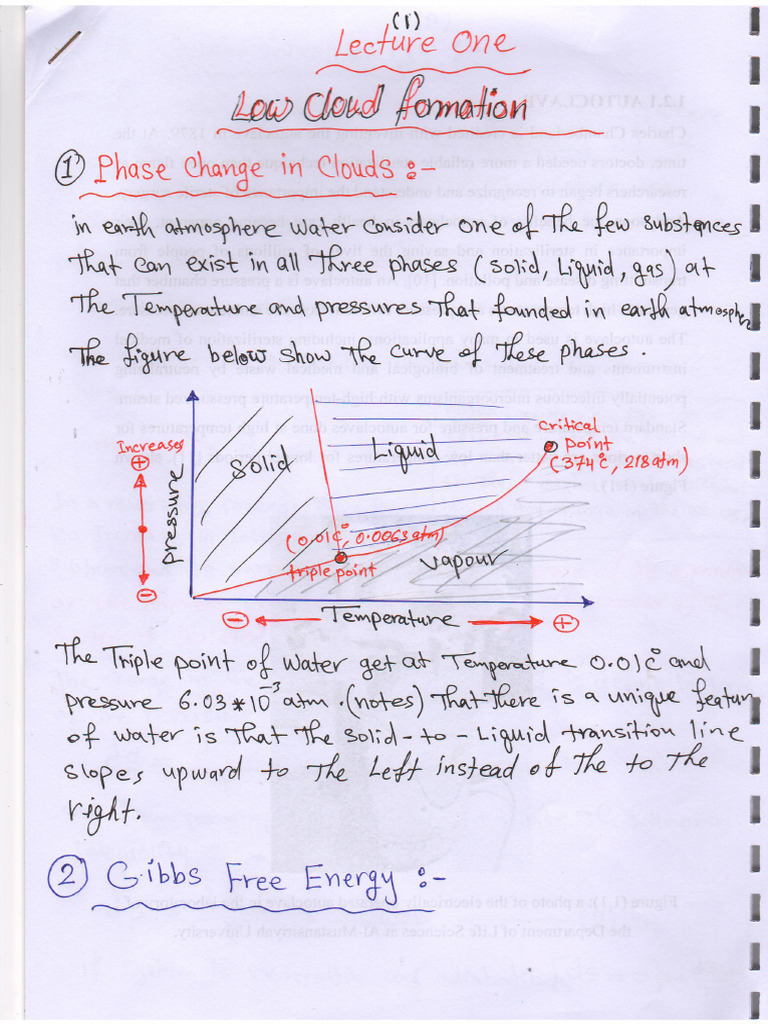 (1)
Lecture One
Low Cloud formation
1) Phase Change in Clouds :-
in earth atmosphere water consider one of The few substances
That can exist in all Three phases (solid, Liquid, gas) at
The Temperature and pressures That founded in earth atmosph
The figure below show The curve of These phases.
Increases
+
Pressure
-
Solid
Liquid
critical
point
(374c°, 218 atm)
(0.01c°, 0.0063 atm)
triple point
vapour
- Temperature +
The Triple point of water get at Temperature 0.01c° and
pressure 6.03 * 10^-3 atm. (notes) That There is a unique featur
of water is That The solid-to-Liquid transition line
slopes upward to The Left instead of The to The
right.
2 Gibbs Free Energy :-